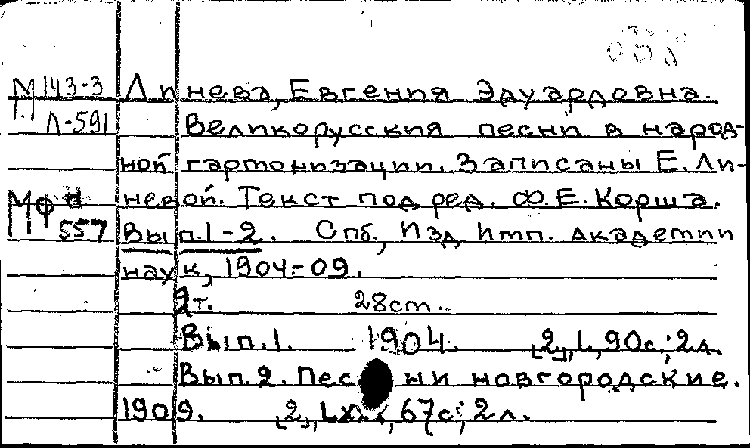 М 143-3 Линева, Евгения Эдуардовна.
Л-591 Великорусския песни в народ-
ной гармонизации. Записаны Е. Ли-
невой. Текст под ред. Ф.Е. Корша.
МФ 557 Вып.1-2. Спб, Изд Имп. академии
наук, 1904-09.
2т. 28см.
Вып.1. 1904. [2], L, 90с; 2л.
Вып.2. Песни новгородские.
1909. [2], 67с; 2л.